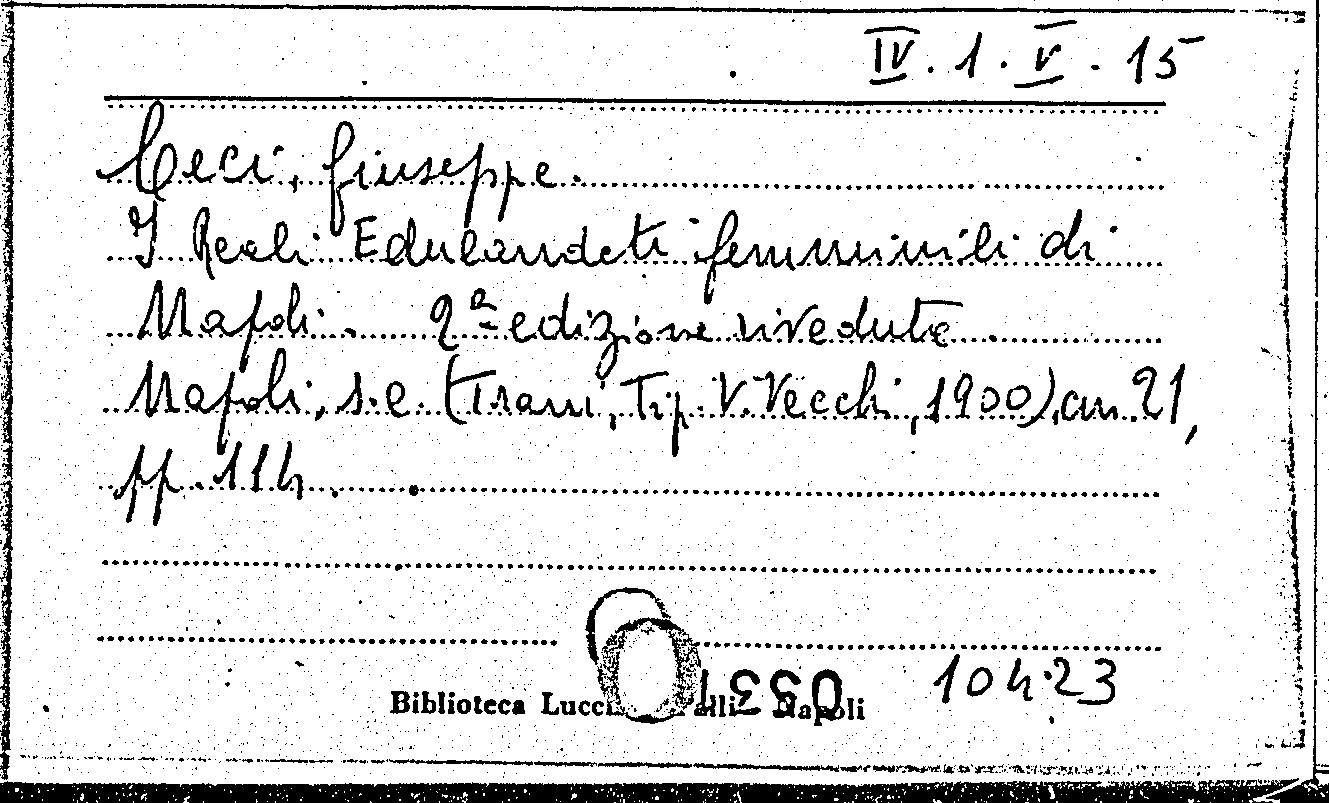 IV.1.V.15
Ceci, Giuseppe.
I Reali Educandati femminili di
Napoli. 2ª edizione riveduta
Napoli, s.e. (Trani, Tip. V. Vecchi, 1900), cm. 21,
pp. 114.
10423
Biblioteca Lucchesi Palli Napoli